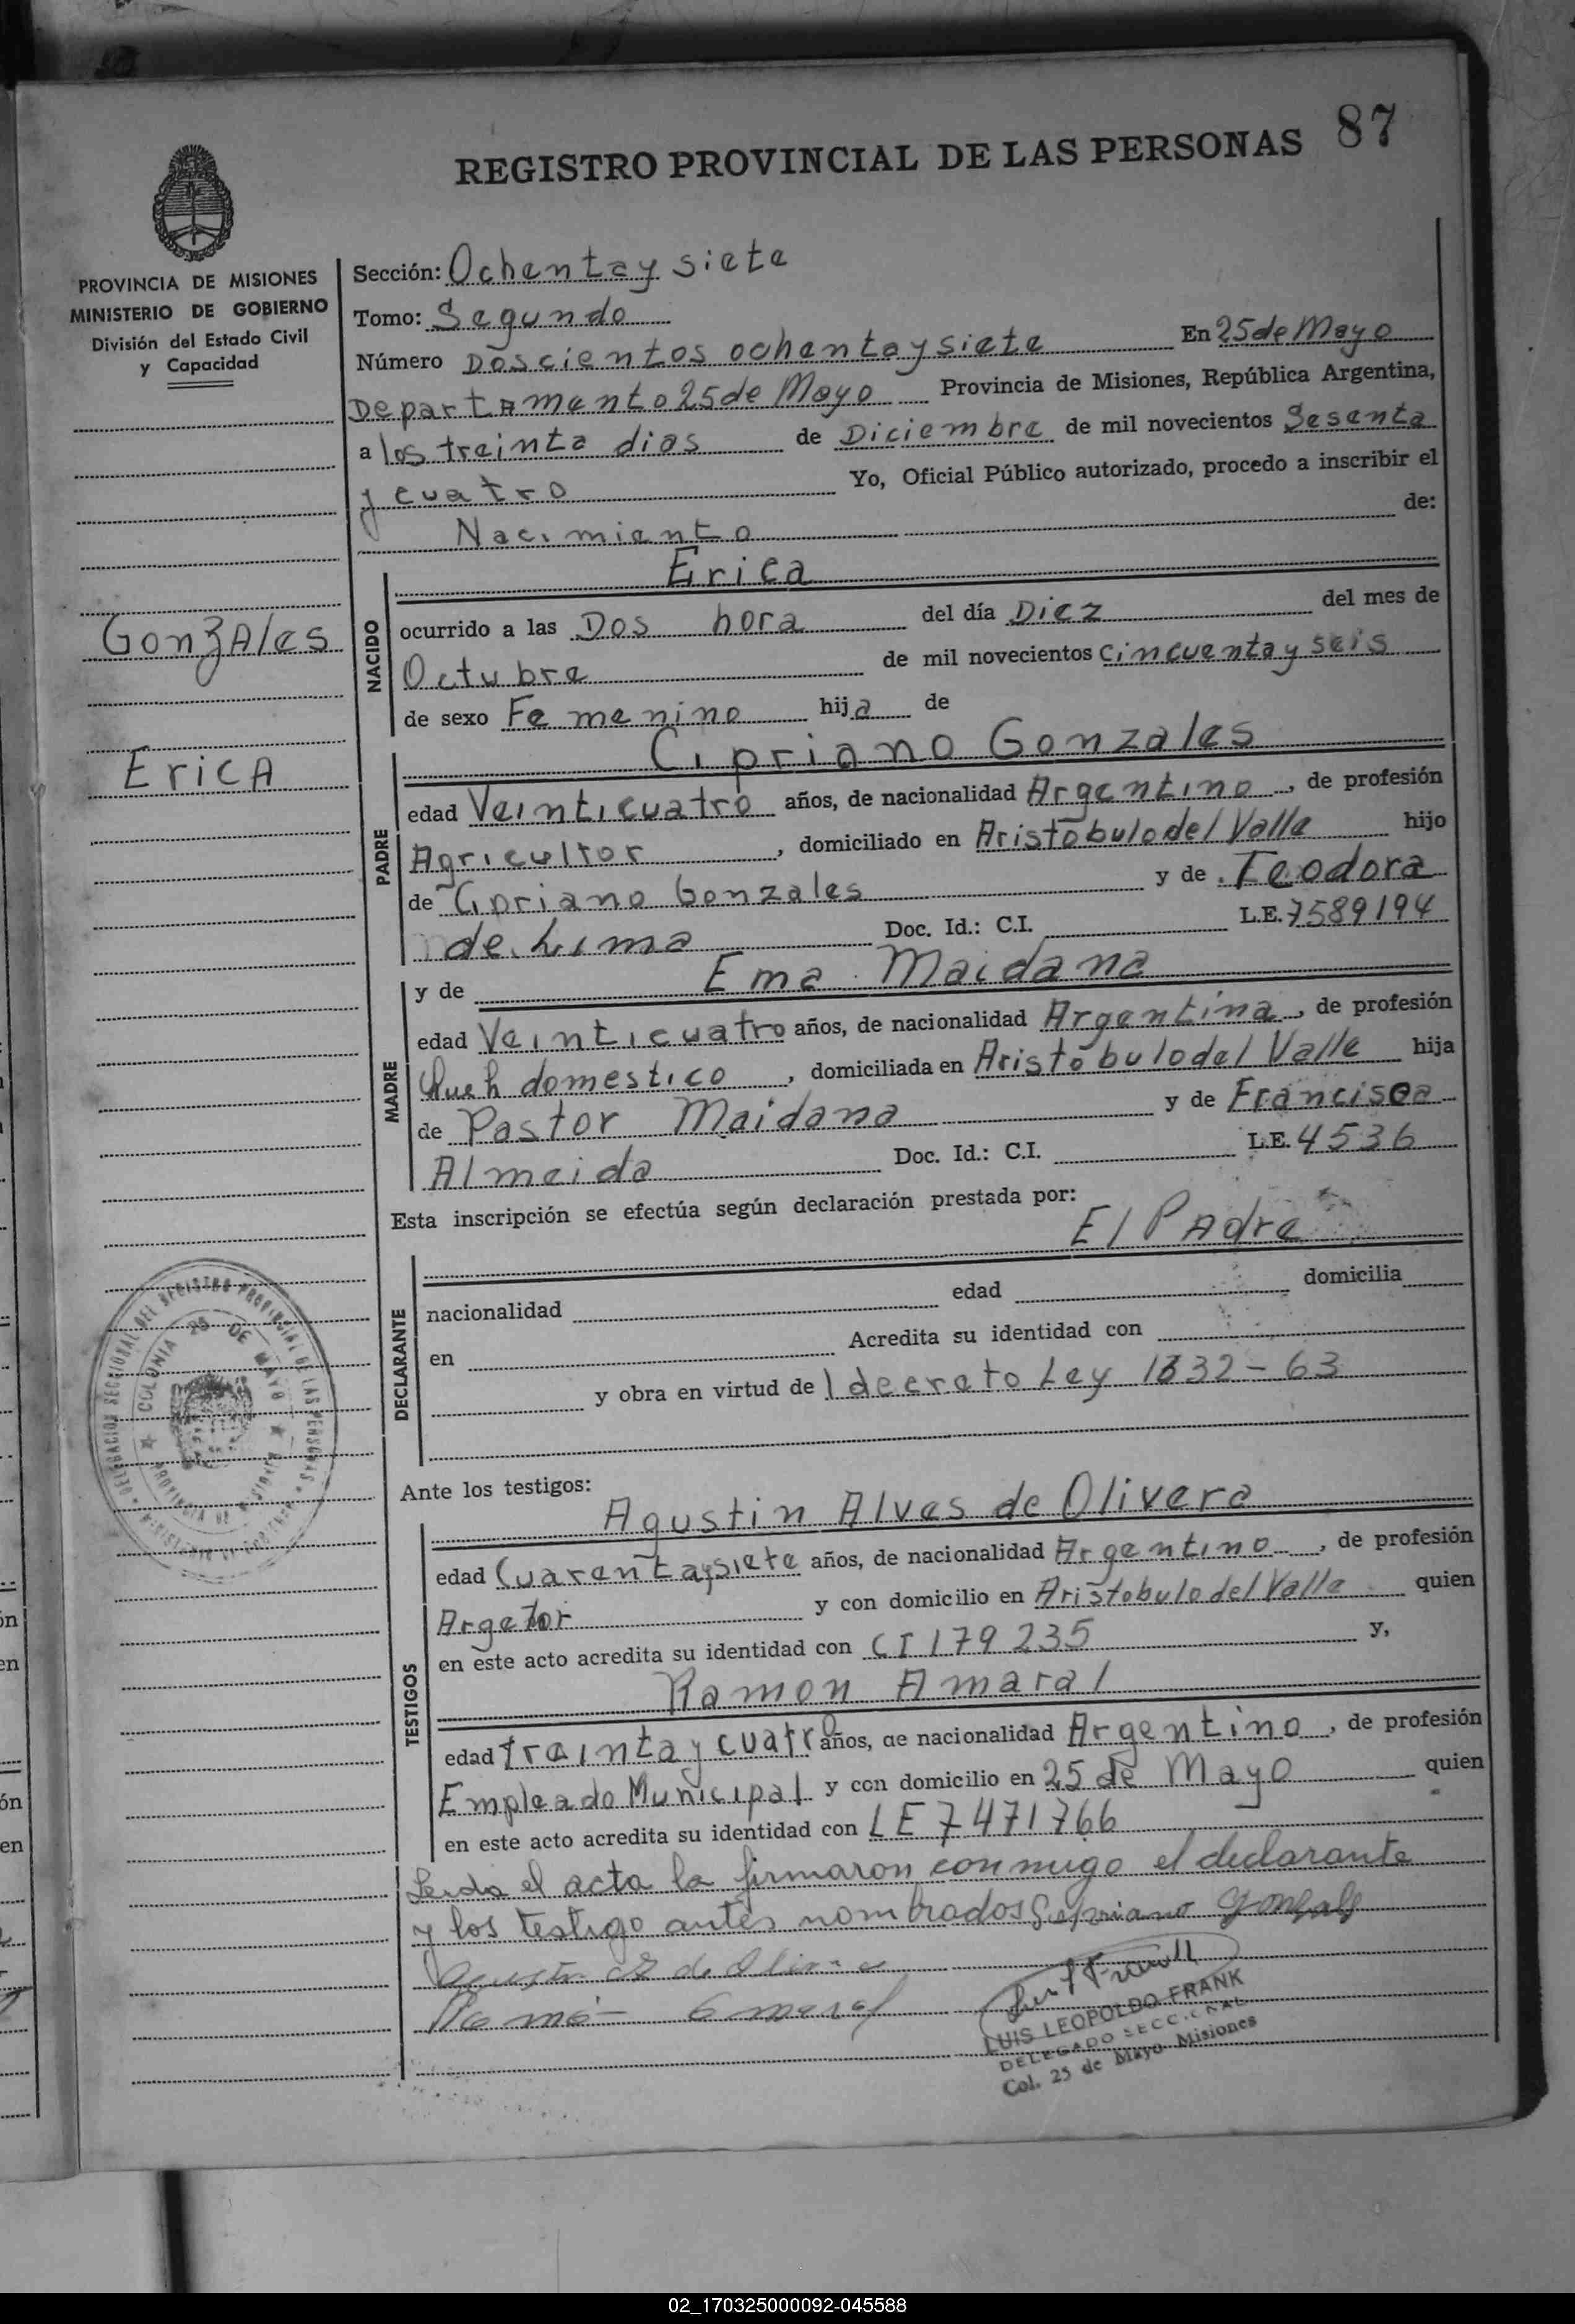 87
REGISTRO PROVINCIAL DE LAS PERSONAS
PROVINCIA DE MISIONES
MINISTERIO DE GOBIERNO
División del Estado Civil
y Capacidad
Gonzales
Erica
Sección: Ochenta y siete
Tomo: Segundo
Número Doscientos ochenta y siete En 25 de Mayo
Departamento 25 de Mayo Provincia de Misiones, República Argentina,
a los treinta dias de Diciembre de mil novecientos Sesenta
y cuatro Yo, Oficial Público autorizado, procedo a inscribir el
Nacimiento de:
NACIDO
Erica
ocurrido a las Dos hora del día Diez del mes de
Octubre de mil novecientos Cincuenta y seis
de sexo Femenino hija de
PADRE
Cipriano Gonzales
edad Veinticuatro años, de nacionalidad Argentino, de profesión
Agricultor, domiciliado en Aristobulo del Valle hijo
de Cipriano Gonzales y de Teodora
de Lima Doc. Id.: C.I. L.E. 7589194
MADRE
y de Ema Maidana
edad Veinticuatro años, de nacionalidad Argentina, de profesión
Queh domestico, domiciliada en Aristobulo del Valle hija
de Pastor Maidana y de Francisca
Almeida Doc. Id.: C.I. L.E. 4536
Esta inscripción se efectúa según declaración prestada por:
DECLARANTE
El Padre
nacionalidad edad domicilia
en Acredita su identidad con
y obra en virtud de l decreto Ley 1332-63
Ante los testigos:
TESTIGOS
Agustin Alves de Olivera
edad Cuarenta y siete años, de nacionalidad Argentino, de profesión
Argetor y con domicilio en Aristobulo del Valle quien
en este acto acredita su identidad con CI 179 235 y,
Ramon Amaral
edad treinta y cuatro años, de nacionalidad Argentino, de profesión
Empleado Municipal y con domicilio en 25 de Mayo quien
en este acto acredita su identidad con LE 7471766
Leida el acta la firmaron conmigo el declarante
y los testigo antes nombrados
LUIS LEOPOLDO FRANK
DELEGADO SECCIONAL
Col. 25 de Mayo Misiones
DELEGACION SECCIONAL DEL REGISTRO PROVINCIAL DE LAS PERSONAS
COLONIA 25 DE MAYO
PROVINCIA DE MISIONES
02_170325000092-045588